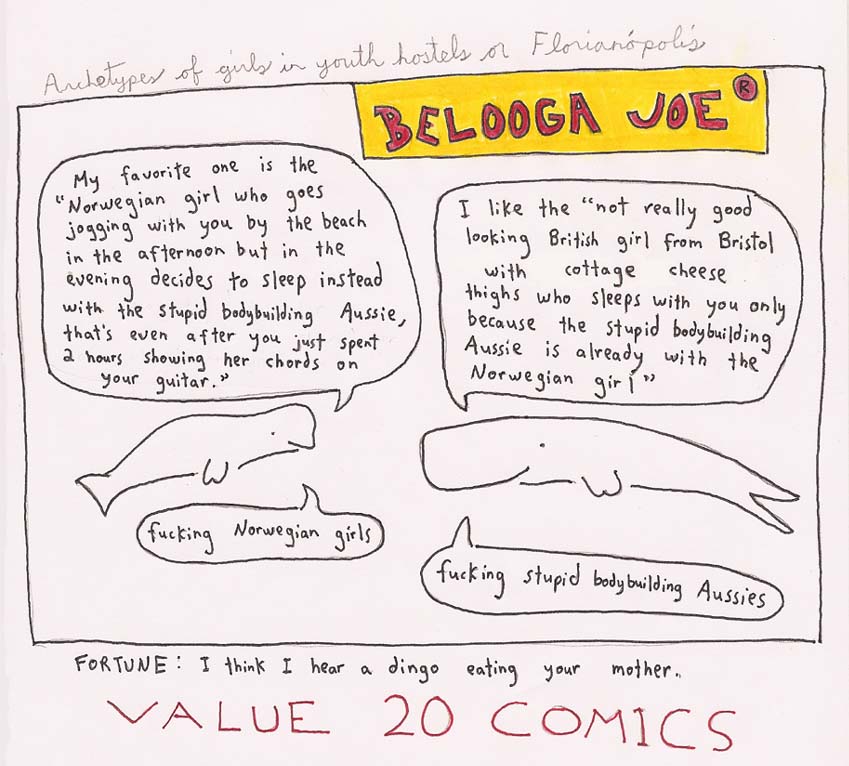 Archetypes of girls in youth hostels or Florianópolis
BELOOGA JOE ®
My favorite one is the
"Norwegian girl who goes
jogging with you by the beach
in the afternoon but in the
evening decides to sleep instead
with the stupid bodybuilding Aussie,
that's even after you just spent
2 hours showing her chords on
your guitar."
I like the "not really good
looking British girl from Bristol
with cottage cheese
thighs who sleeps with you only
because the stupid bodybuilding
Aussie is already with the
Norwegian girl"
fucking Norwegian girls
fucking stupid bodybuilding Aussies
FORTUNE: I think I hear a dingo eating your mother..
VALUE 20 COMICS